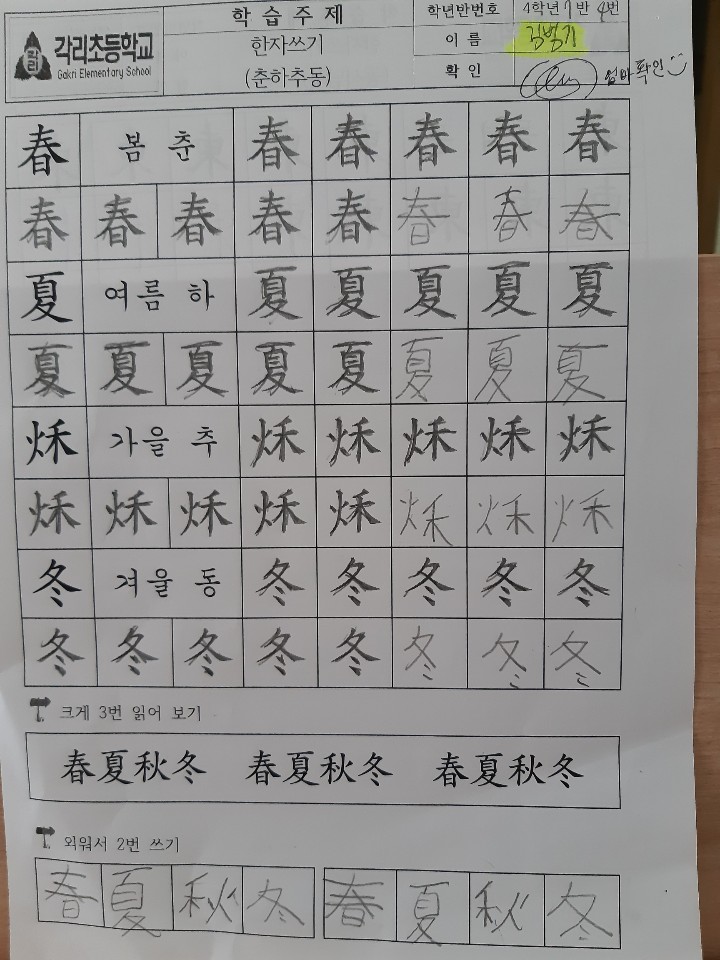 각리
각리초등학교
Gakri Elementary School
학습주제
한자쓰기
(춘하추동)
학년반번호 4학년 7반 4번
이름 김범기
확인 엄마확인
春 봄 춘 春 春 春 春 春
春 春 春 春 春 春 春 春
夏 여름 하 夏 夏 夏 夏 夏
夏 夏 夏 夏 夏 夏 夏 夏
烌 가을 추 烌 烌 烌 烌 烌
烌 烌 烌 烌 烌 烌 烌 烌
冬 겨울 동 冬 冬 冬 冬 冬
冬 冬 冬 冬 冬 冬 冬 冬
크게 3번 읽어 보기
春夏秋冬 春夏秋冬 春夏秋冬
외워서 2번 쓰기
春 夏 秋 冬 春 夏 秋 冬